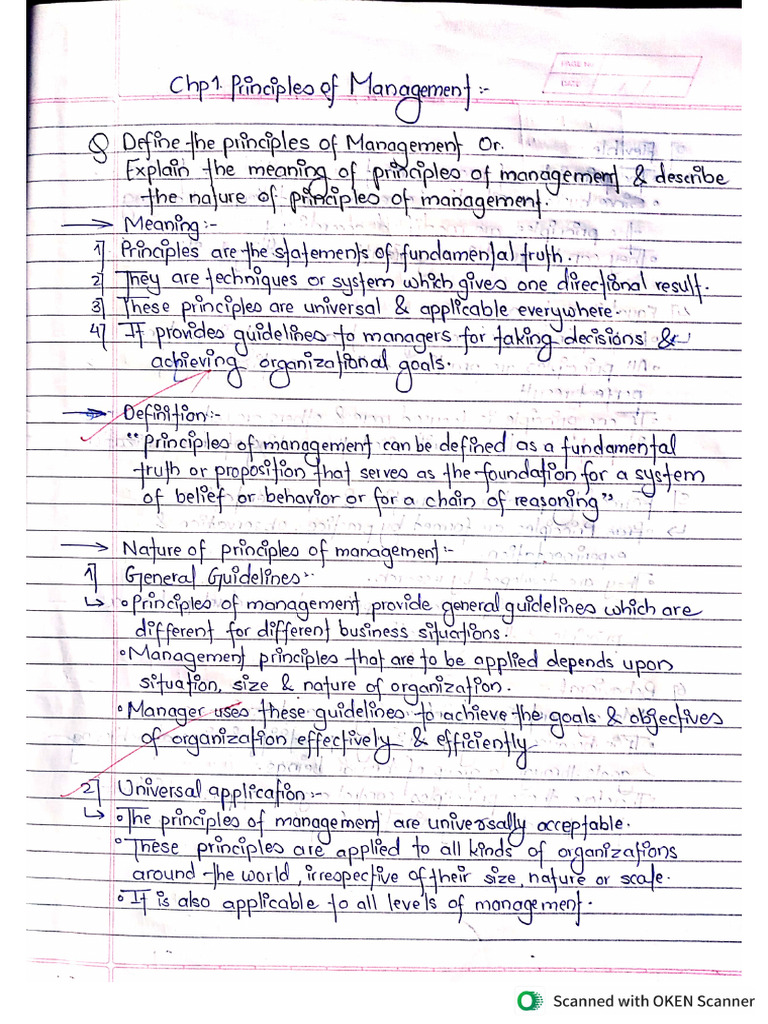 PAGE No.
DATE
Chp1. Principles of Management :-
Q Define the principles of Management Or.
Explain the meaning of principles of management & describe
the nature of principles of management.
→ Meaning :-
1] Principles are the statements of fundamental truth.
2] They are techniques or system which gives one directional result.
3] These principles are universal & applicable everywhere.
4] It provides guidelines to managers for taking decisions &
achieving organizational goals.
→ Definition :-
"Principles of management can be defined as a fundamental
truth or proposition that serves as the foundation for a system
of belief or behavior or for a chain of reasoning"
→ Nature of principles of management :-
1] General Guidelines :-
↳ • Principles of management provide general guidelines which are
different for different business situations.
• Management principles that are to be applied depends upon
situation, size & nature of organization.
• Manager uses these guidelines to achieve the goals & objectives
of organization effectively & efficiently
2] Universal application :-
↳ • The principles of management are universally acceptable.
• These principles are applied to all kinds of organizations
around the world, irrespective of their size, nature or scale.
• It is also applicable to all levels of management.
Scanned with OKEN Scanner